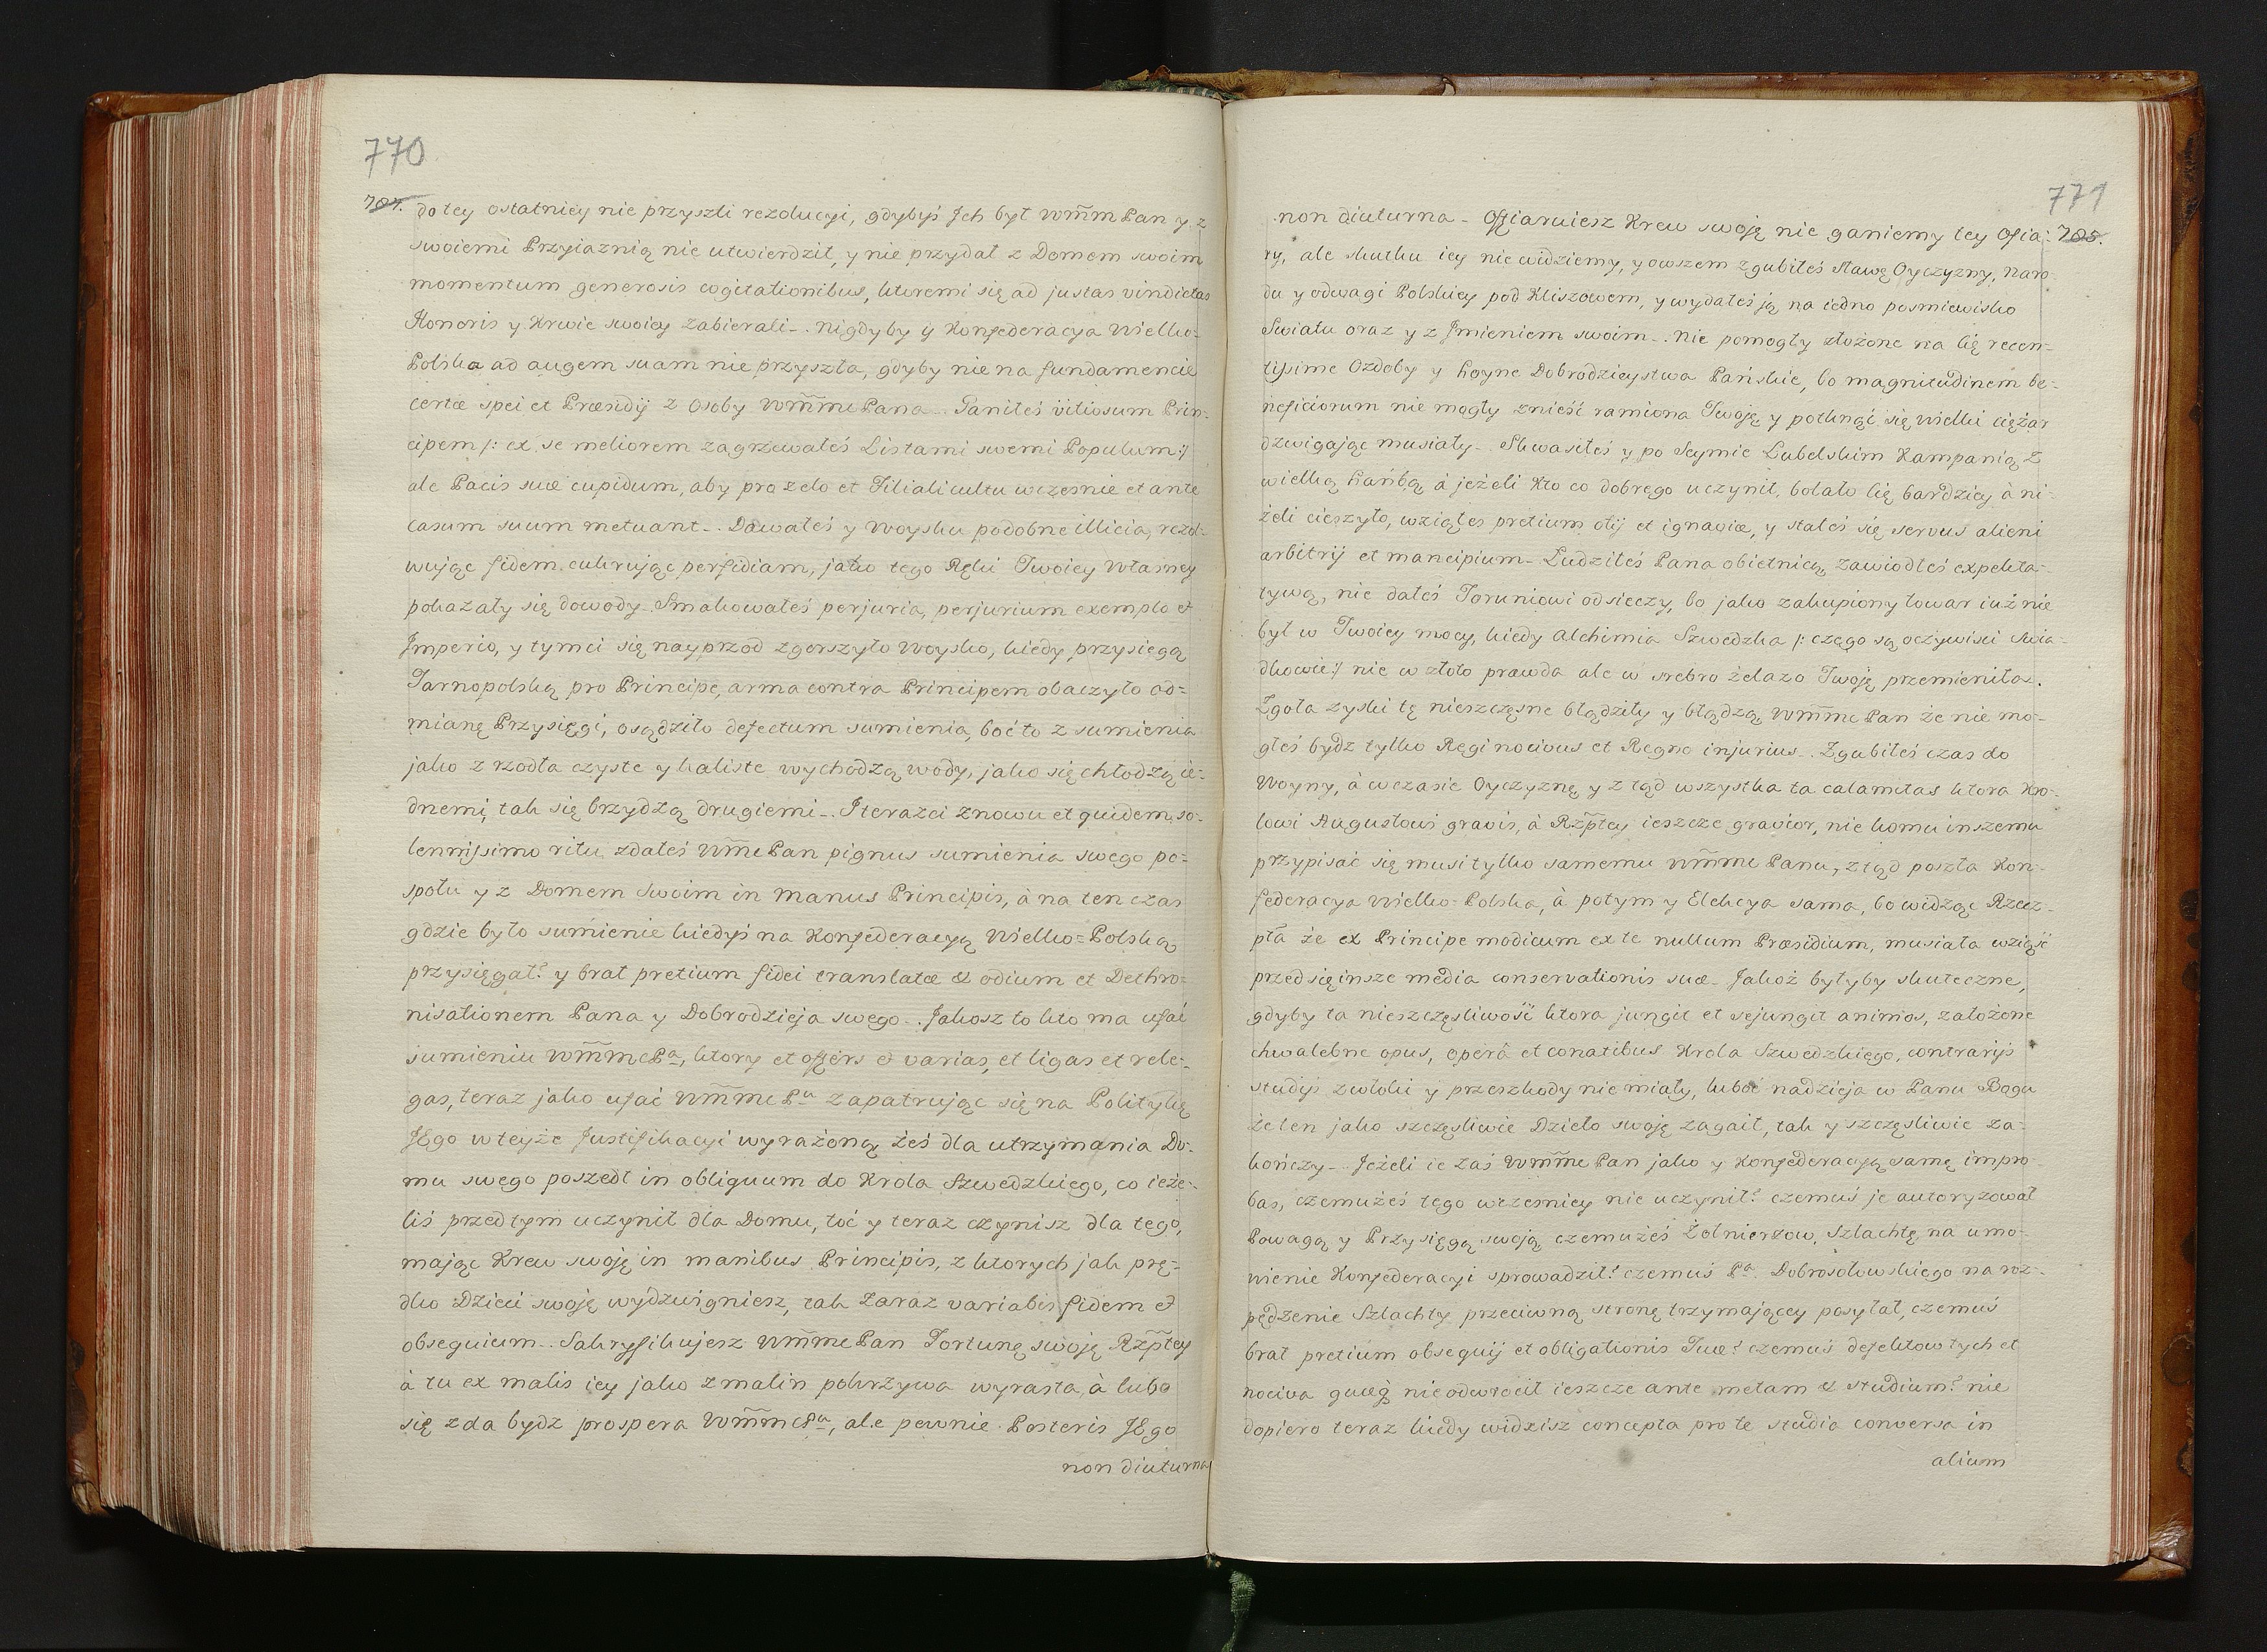 770
707. do tey ostatniey nie przyszli rezolucyi, gdybyś Jch był Wm̃m Pan y z
swoiemi Przyiaznią nie utwierdził, y nie przydał z Domem swoim
momentum generosis cogitationibus, ktoremi się ad justas vindictas
Honoris y Krwie swoiey zabierali_. Nigdyby y Konfederacya Wielko-
Polska ad augem suam nie przyszła, gdyby nie na fundamencie
certæ spei et Præsidij z Osoby Wm̃me Pana_ Ganiłeś vitiosum Prin-
cipem /: ex se meliorem zagrzewałeś Listami swemi Populum :/
ale Pacis suæ cupidum, aby pro zelo et Filiali cultu wczesnie et ante
casum suum metuant_. Dawałeś y Woysku podobne illicia, rezol-
wując fidem, cukrując perfidiam, jako tego Ręki Twoiey Własney
pokazały się dowody_. Smakowałeś perjuria, perjurium exemplo et
Jmperio, y tymci się nayprzod zgorszyło Woysko, kiedy przysięgą
Tarnopolską pro Principe, arma contra Principem obaczyło od=
mianę Przysięgi, osądziło defectum sumienia, boć to z sumienia
jako z rzodła czyste y kaliste wychodzą wody, jako się chłodzą ie-
dnemi, tak się brzydzą drugiemi_. Jterazci znowu et quidem so-
lennissimo ritu zdałeś Wm̃e Pan pignus sumienia swego po=
społu y z Domem Swoim in manus Principis, à na ten czas
gdzie było sumienie kiedyś na Konfederacyą Wielko=Polską
przysięgał? y brał pretium fidei translatæ & odium et Dethro-
nisationem Pana y Dobrodzieja swego_. Jakosz to kto ma ufać
sumieniu Wm̃me Pa, ktory et offers & varias, et ligas et rele-
gas, teraz jako ufać Wm̃me Pu zapatrując się na Politykę
JEgo w teyże Justifikacyi wyrażoną żeś dla utrzymania Do-
mu swego poszedł in obliquum do Krola Szwedzkiego, co ieże-
liś przedtym uczynił dla Domu, toć y teraz czynisz dla tego,
mając Krew swoję in manibus Principis, z ktorych jak prę-
dko Dzieci swoję wydzwigniesz, tak zaraz variabis fidem &
obsequium_. Sakryfikujesz Wm̃me Pan Fortunę swoję Rzp̃tey
à tu ex malis iey jako z malin pokrzywa wyrasta, à lubo
się zda bydz prospera Wm̃me Pu, ale pewnie Posteris JEgo
non diuturna
771
non diuturna_ Offiaruiesz Krew swoję nie ganiemy tey Ofia- 708.
ry, ale skutku iey nie widziemy, y owszem zgubiłeś sławę Oyczyzny, Naro-
du y odwagi Polskiey pod Kliszowem, y wydałeś ją na iedno posmiewisko
Swiatu oraz y z Jmieniem swoim_. Nie pomogły złożone na cię recen-
tissime Ozdoby y hoyne Dobrodzieystwa Pańskie, bo magnitudinem be-
neficiorum nie mogły znieść ramiona Twoję y potknąć się wielki ciężar
dzwigając musiały_. Skwasiłeś y po Seymie Lubelskim Kampanią z
wielką hańbą à jeżeli kto co dobrego uczynił, bolało cię bardziey à ni-
żeli cieszyło, wziąłeś pretium otij et ignaviæ, y stałeś się servus alieni
arbitrij et mancipium_ Łudziłeś Pana obietnicą, zawiodłeś expekta-
tywą, nie dałeś Toruniowi odsieczy, bo jako zakupiony towar iuż nie
był w Twoiey mocy, kiedy Alchimia Szwedzka /: czego są oczywisci Swia-
dkowie :/ nie w złoto prawda ale w srebro żelazo Twoję przemieniła.
Zgoła zyski tę nieszczęsne błądziły y błądzą Wm̃me Pan że nie mo-
głeś bydz tylko Regi nocivus et Regno injurius_. Zgubiłeś czas do
Woyny, à w czasie Oyczyznę y z tąd wszystka ta calamitas ktora Kro-
lowi Augustowi gravis, à Rzp̃tey ieszcze gravior, nie komu inszemu
przypisać się musi tylko samemu Wm̃me Panu, z tąd poszła Kon-
federacya Wielko-Polska, à potym y Elekcya sama, bo widząc Rzecz-
pta że ex Principe modicum ex te nullum Præsidium, musiała wziąść
przed się insze media conservationis suæ_ Jakoż byłyby skuteczne,
gdyby ta nieszczęsliwość ktora jungit et sejungit animos, założone
chwalebne opus, operâ et conatibus Krola Szwedzkiego, contrarijs
studijs zwłoki y przeszkody nie miały, luboć nadzieja w Panu Bogu
że ten jako szczęsliwie Dzieło swoję zagaił, tak y szczęsliwie za-
kończy_. Jeżeli ie zaś Wm̃me Pan jako y Konfederacyą samę impro-
bas, czemużeś tego wczesniey nie uczynił? czemuś je autoryzował
Powagą y Przysięgą swoją, czemużeś Żołnierzow, Szlachtę na umo-
wienie Konfederacyi sprowadził? czemuś Pa Dobrosołowskiego na roz-
pędzenie Szlachty przeciwną stronę trzymaiącey posyłał, czemuś
brał pretium obsequij et obligationis Tuæ? czemuś defektow tych et
nociva quæq nie odwrocił ieszcze ante metam & studium? nie
dopiero teraz kiedy widzisz concepta pro te studia conversa in
alium